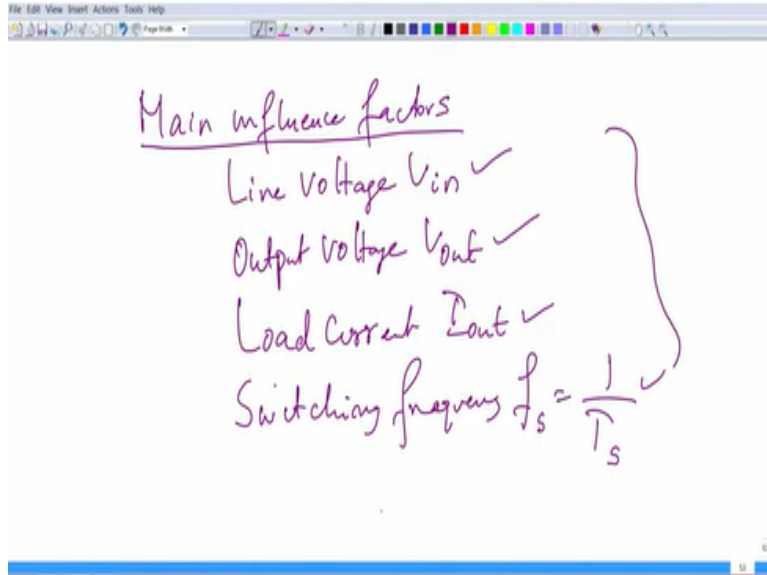 File Edit View Insert Actions Tools Help
Page Width
Main influence factors
Line Voltage Vin ✓
Output voltage Vout ✓
Load Current Iout ✓
Switching frequency fs = 1/Ts ✓